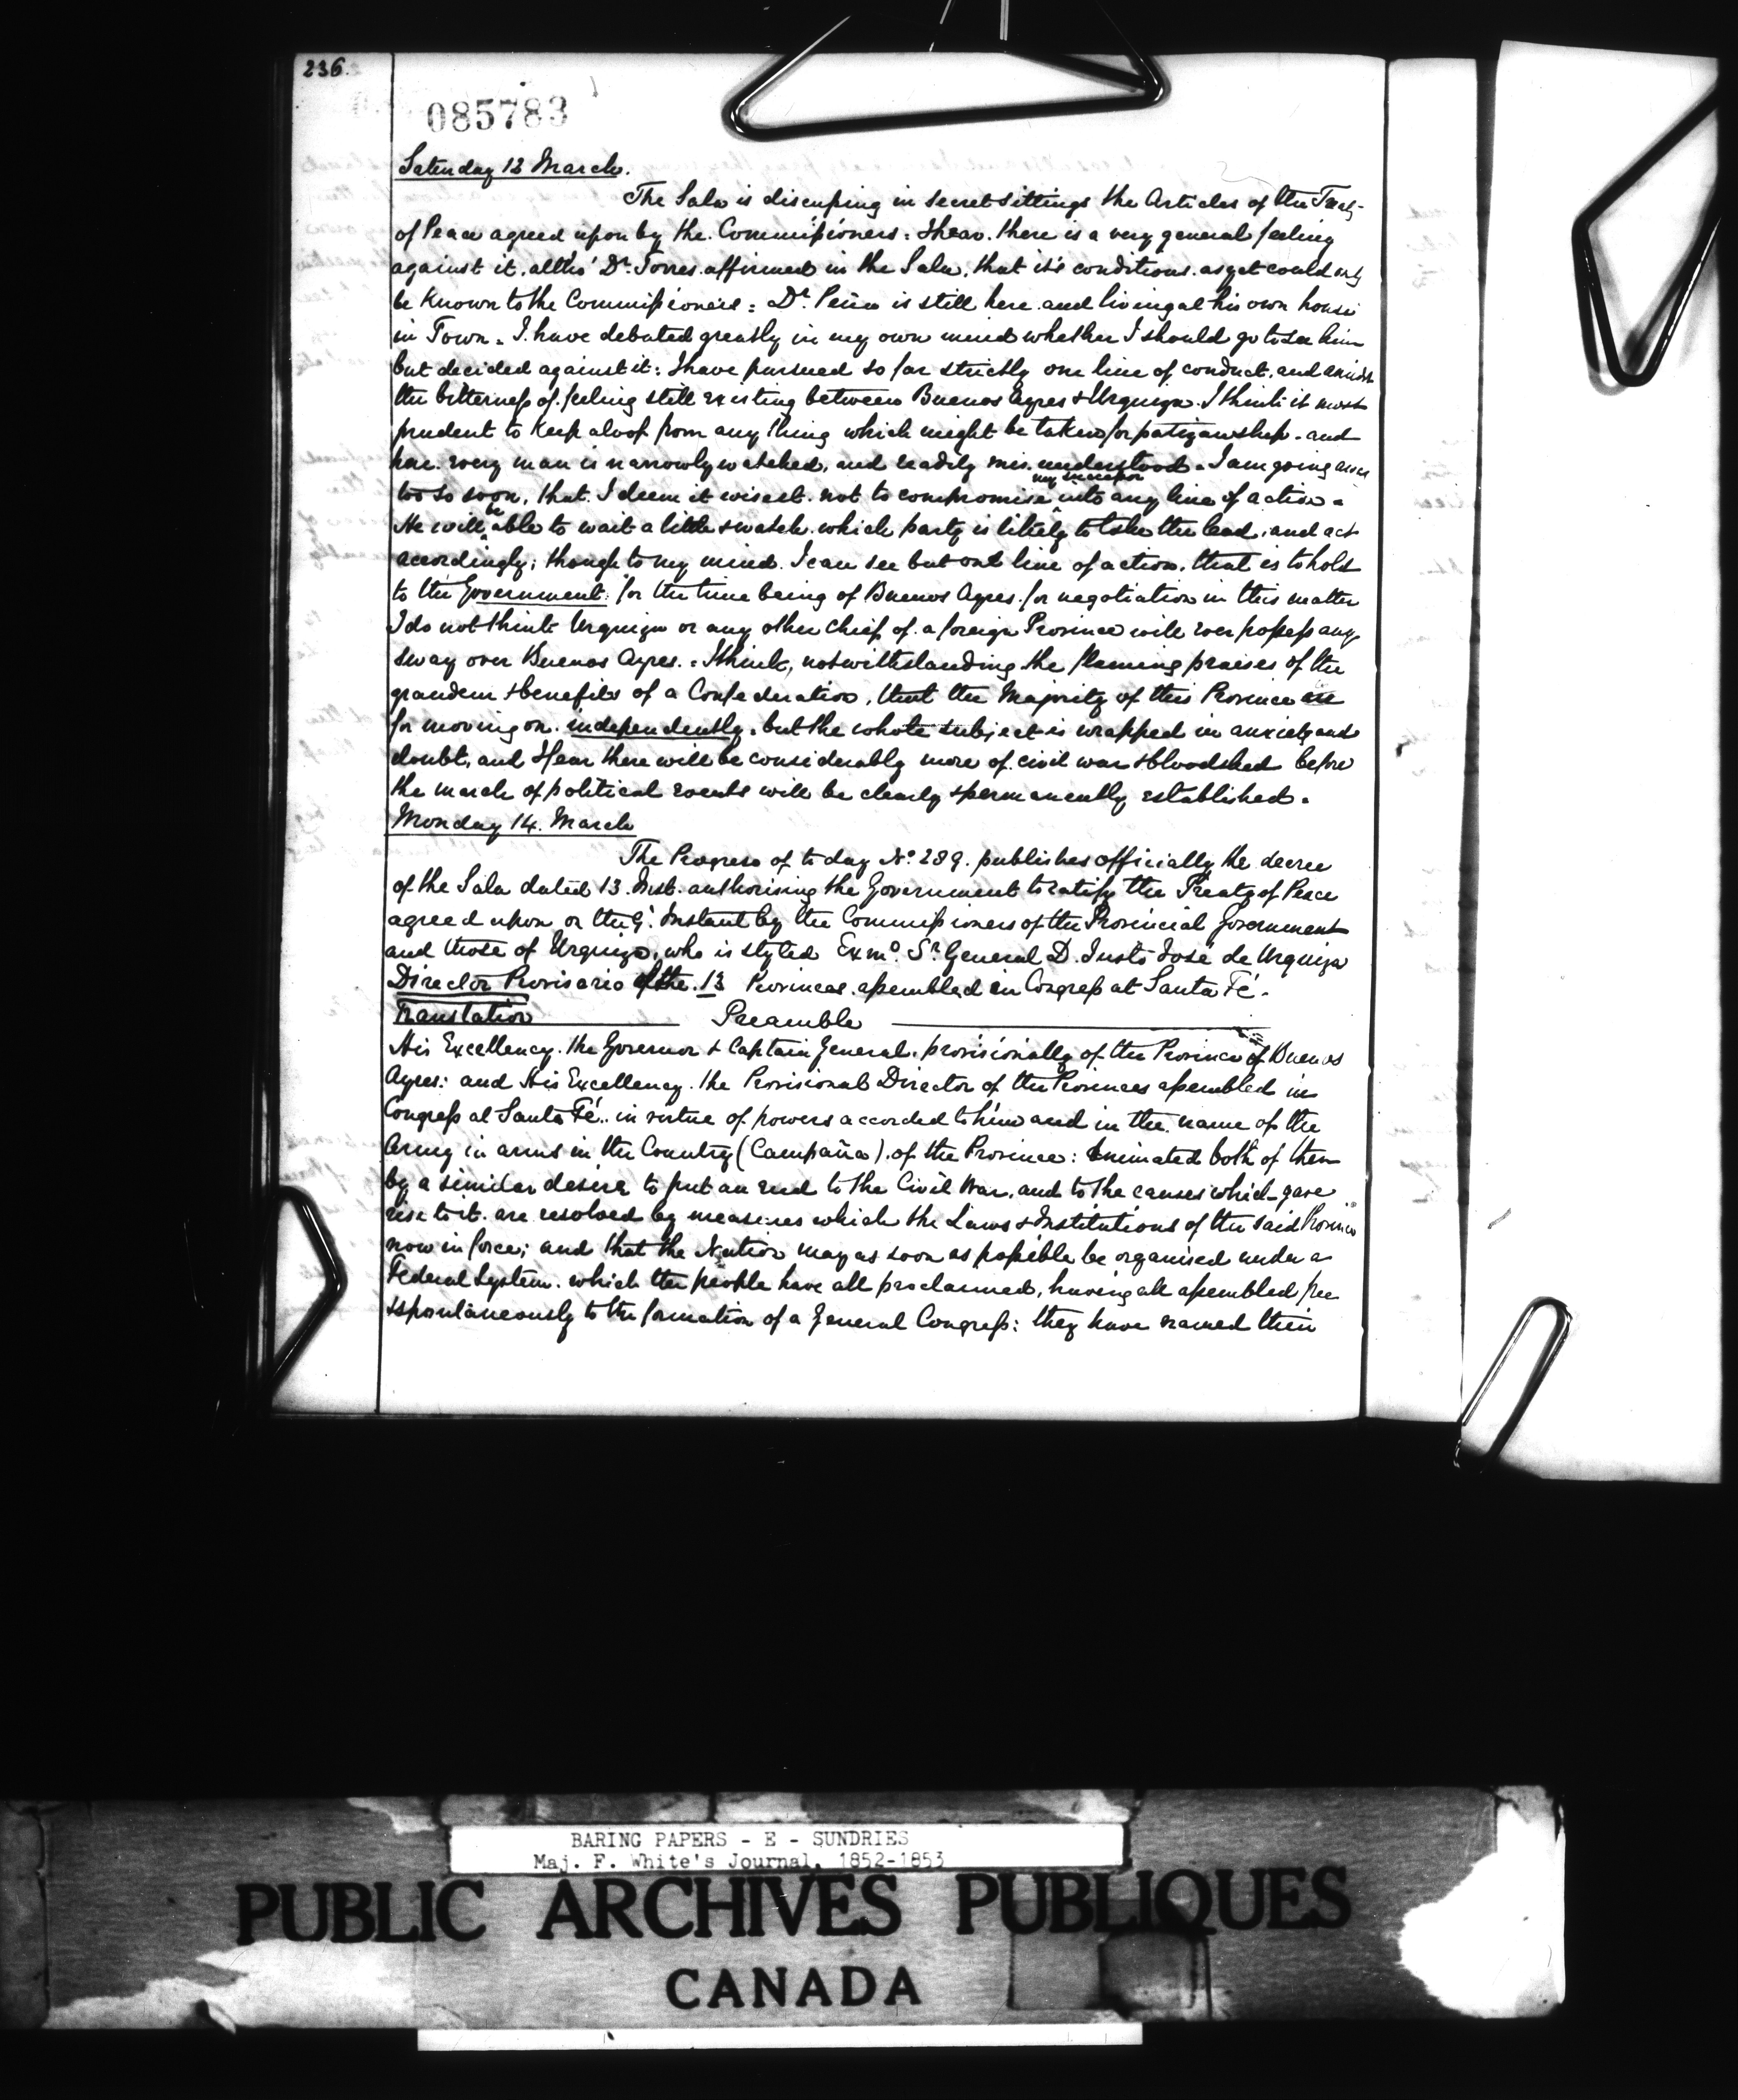 236.
085783
Saturday 12 March.
The Sala is discussing in secret sittings the Articles of the Treaty
of Peace agreed upon by the Commissioners = I hear there is a very general feeling
against it, altho' Dr. Torres affirmed in the Sala, that it's conditions as yet could only
be known to the Commissioners = Dr. Peña is still here and living at his own house
in Town = I have debated greatly in my own mind whether I should go to see him
but decided against it: I have pursued so far strictly one line of conduct, and amidst
the bitterness of feeling still existing between Buenos Ayres & Urquiza. I think it most
prudent to keep aloof from any thing which might be taken for patizanship - and
here every man is narrowly watched, and readily mis understood = I am going away
too so soon, that I deem it wisest not to compromise my successor into any line of action =
He will be able to wait a little & watch which party is likely to take the lead, and act
accordingly; though to my mind I can see but one line of action, that is to hold
to the Government for the time being of Buenos Ayres for negotiation in this matter
I do not think Urquiza or any other Chief of a foreign Province will ever possess any
sway over Buenos Ayres. = I think, notwithstanding the flaming praises of the
grandeur & benefits of a Confederation, that the Majority of this Province are
for moving on independently, but the whole subject is wrapped in anxiety and
doubt, and I fear there will be considerably more of civil war & bloodshed before
the march of political events will be clearly & permanently established.
Monday 14. March
The Progreso of to day No. 289. publishes officially the decree
of the Sala dated 13 Inst. authorising the Government to ratify the Treaty of Peace
agreed upon on the 9. Instant by the Commissioners of the Provincial Government
and those of Urquiza, who is styled Exmo. Sr. General D. Justo José de Urquiza
Director Provisorio of the 13 Provinces assembled in Congress at Santa Fé.
Translation Preamble
His Excellency the Governor & Captain General, provisionally of the Province of Buenos
Ayres: and His Excellency the Provisional Director of the Provinces assembled in
Congress at Santa Fé, in virtue of powers accorded to him and in the name of the
Army in arms in the Country (Campaña) of the Province: animated both of them
by a similar desire to put an end to the Civil War, and to the causes which gave
rise to it are resolved by measures which the Laws & Institutions of the said Province
now in force; and that the Nation may as soon as possible be organised under a
Federal System which the people have all proclaimed, having all assembled free
& spontaneously to the formation of a General Congress: they have named their
BARING PAPERS - E - SUNDRIES
Maj. F. White's Journal, 1852-1853
PUBLIC ARCHIVES PUBLIQUES
CANADA